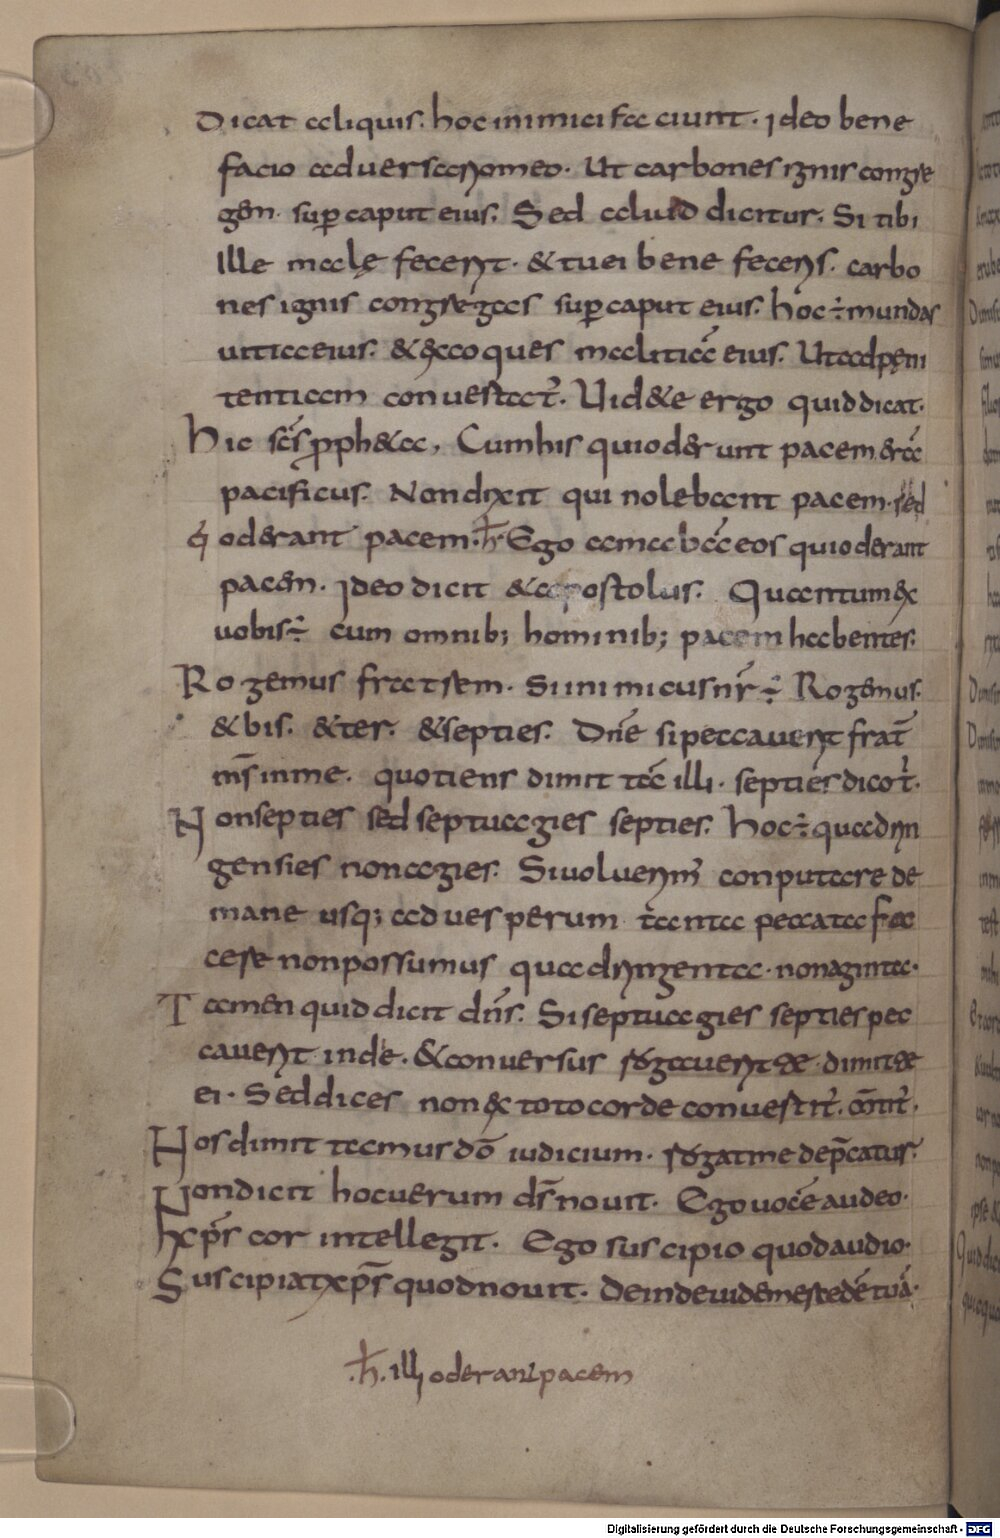 Dicat aliquis. hoc inimici faciunt. ideo bene
facio aduersario meo. Ut carbones ignis congre
gem. sup̱ caput eius. Sed aluid dicitur. Si tibi
Ille malę fecerit. & tu ei bene feceris. carbo
nes ignis congregas sup̱ caput eius. hoc ÷ mundas
uitia eius. & excoques malitiā eius. Ut ad pęni
tentiam conuertat̛. Uid&e ergo quid dicat.
hic sc̄s ꝓph&a, Cum his qui oderunt pacem erā
pacificus. Non dixit qui nolebant pacem. sed
qi oderant pacem. ħ. Ego amabā eos qui oderant
pacem. Ideo dicit & apostolus. Quantum ex
uobis ÷ cum omnib; hominib; pacem habentes.
Rogemus fratrem. Si inimicus nr̄ ÷ Rogemus.
& bis. & ter. & septies. Dn̄e si peccauerit frat̄
ms̄ in me. quotiens dimittā illi. septies dicit̛.
Non septies sed septuagies septies. hoc ÷ quadrin
genties nonagies. Si uoluerim̄ conputare de
mane usq; ad uesperum tanta peccata fa
cere non possumus quadringenta. nonaginta.
Tamen quid dicit dn̄s. Si septuagies septies pec
cauerit in de. & conuersus rogauerit de dimitte
ei. Sed dices non ex toto corde conuertit̛. om̄it̛.
Nos dimittamus dō iudicium. rogat me dep̄catur.
Non dicit hoc uerum ds̄ nouit. Ego uocē audeo.
xp̄s cor intellegit. Ego suscipio quod audio.
Suscipiat xp̄s quod nouit. Deinde uidem es te dētuā.
.ħ. illi oderant pacem
Digitalisierung gefördert durch die Deutsche Forschungsgemeinschaft - DFG